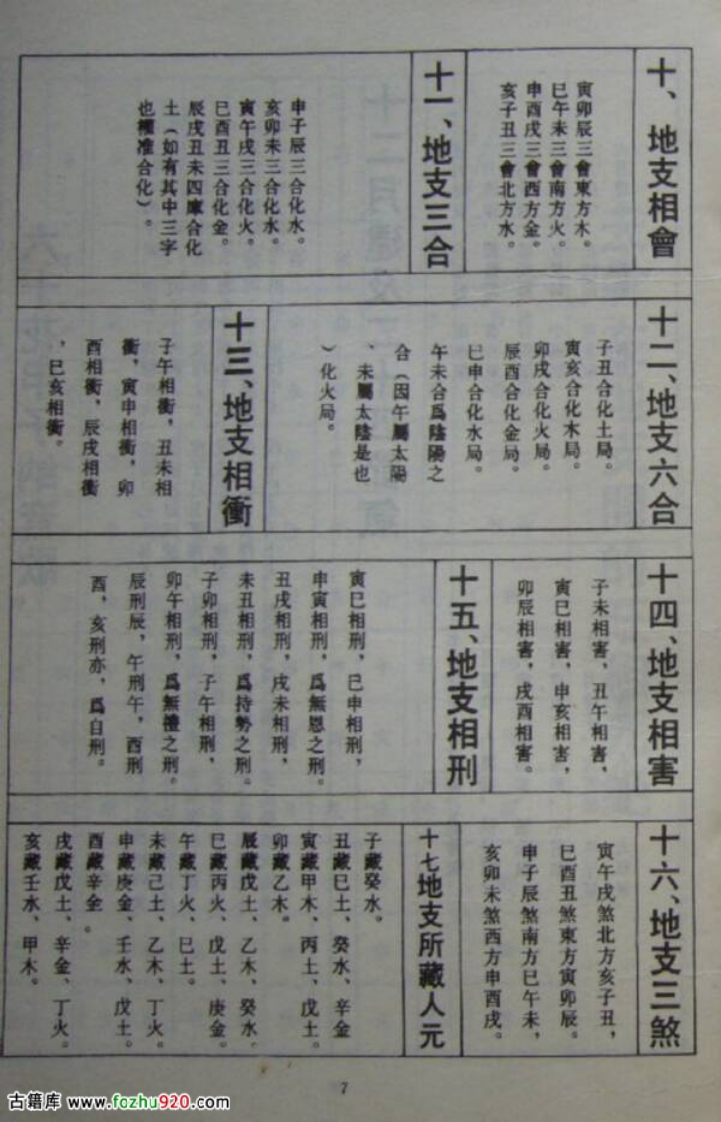 十、地支相會
寅卯辰三會東方木。
巳午未三會南方火。
申酉戌三會西方金。
亥子丑三會北方水。
十一、地支三合
申子辰三合化水。
亥卯未三合化水。
寅午戌三合化火。
巳酉丑三合化金。
辰戌丑未四庫合化
土（如有其中三字
也權准合化）。
十二、地支六合
子丑合化土局。
寅亥合化木局。
卯戌合化火局。
辰酉合化金局。
巳申合化水局。
午未合爲陰陽之
合（因午屬太陽
、未屬太陰是也
）化火局。
十三、地支相衝
子午相衝，丑未相
衝，寅申相衝，卯
酉相衝，辰戌相衝
，巳亥相衝。
十四、地支相害
子未相害，丑午相害，
寅巳相害，申亥相害，
卯辰相害，戌酉相害。
十五、地支相刑
寅巳相刑，巳申相刑，
申寅相刑，爲無恩之刑。
丑戌相刑，戌未相刑，
未丑相刑，爲持勢之刑。
子卯相刑，子午相刑，
卯午相刑，爲無禮之刑。
辰刑辰，午刑午，酉刑
酉，亥刑亦，爲自刑。
十六、地支三煞
寅午戌煞北方亥子丑，
巳酉丑煞東方寅卯辰。
申子辰煞南方巳午未，
亥卯未煞西方申酉戌。
十七地支所藏人元
子藏癸水。
丑藏巳土、癸水、辛金
寅藏甲木、丙土、戊土。
卯藏乙木。
辰藏戊土、乙木、癸水、
巳藏丙火、戊土、庚金。
午藏丁火、巳土。
未藏己土、乙木、丁火。
申藏庚金、壬水、戊土。
酉藏辛金。
戌藏戊土、辛金、丁火。
亥藏壬水、甲木。
7
古籍库 www.fozhu920.com